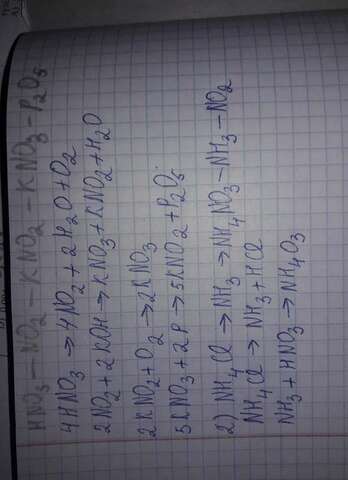 HNO₃ – NO₂ – KNO₂ – KNO₃ – P₂O₅
4HNO₃ → 4NO₂ + 2H₂O + O₂
2NO₂ + 2KOH → KNO₃ + KNO₂ + H₂O
2KNO₂ + O₂ → 2KNO₃
5KNO₃ + 2P → 5KNO₂ + P₂O₅
2) NH₄Cl → NH₃ → NH₄NO₃ – NH₃ – NO₂
NH₄Cl → NH₃ + HCl
NH₃ + HNO₃ → NH₄O₃